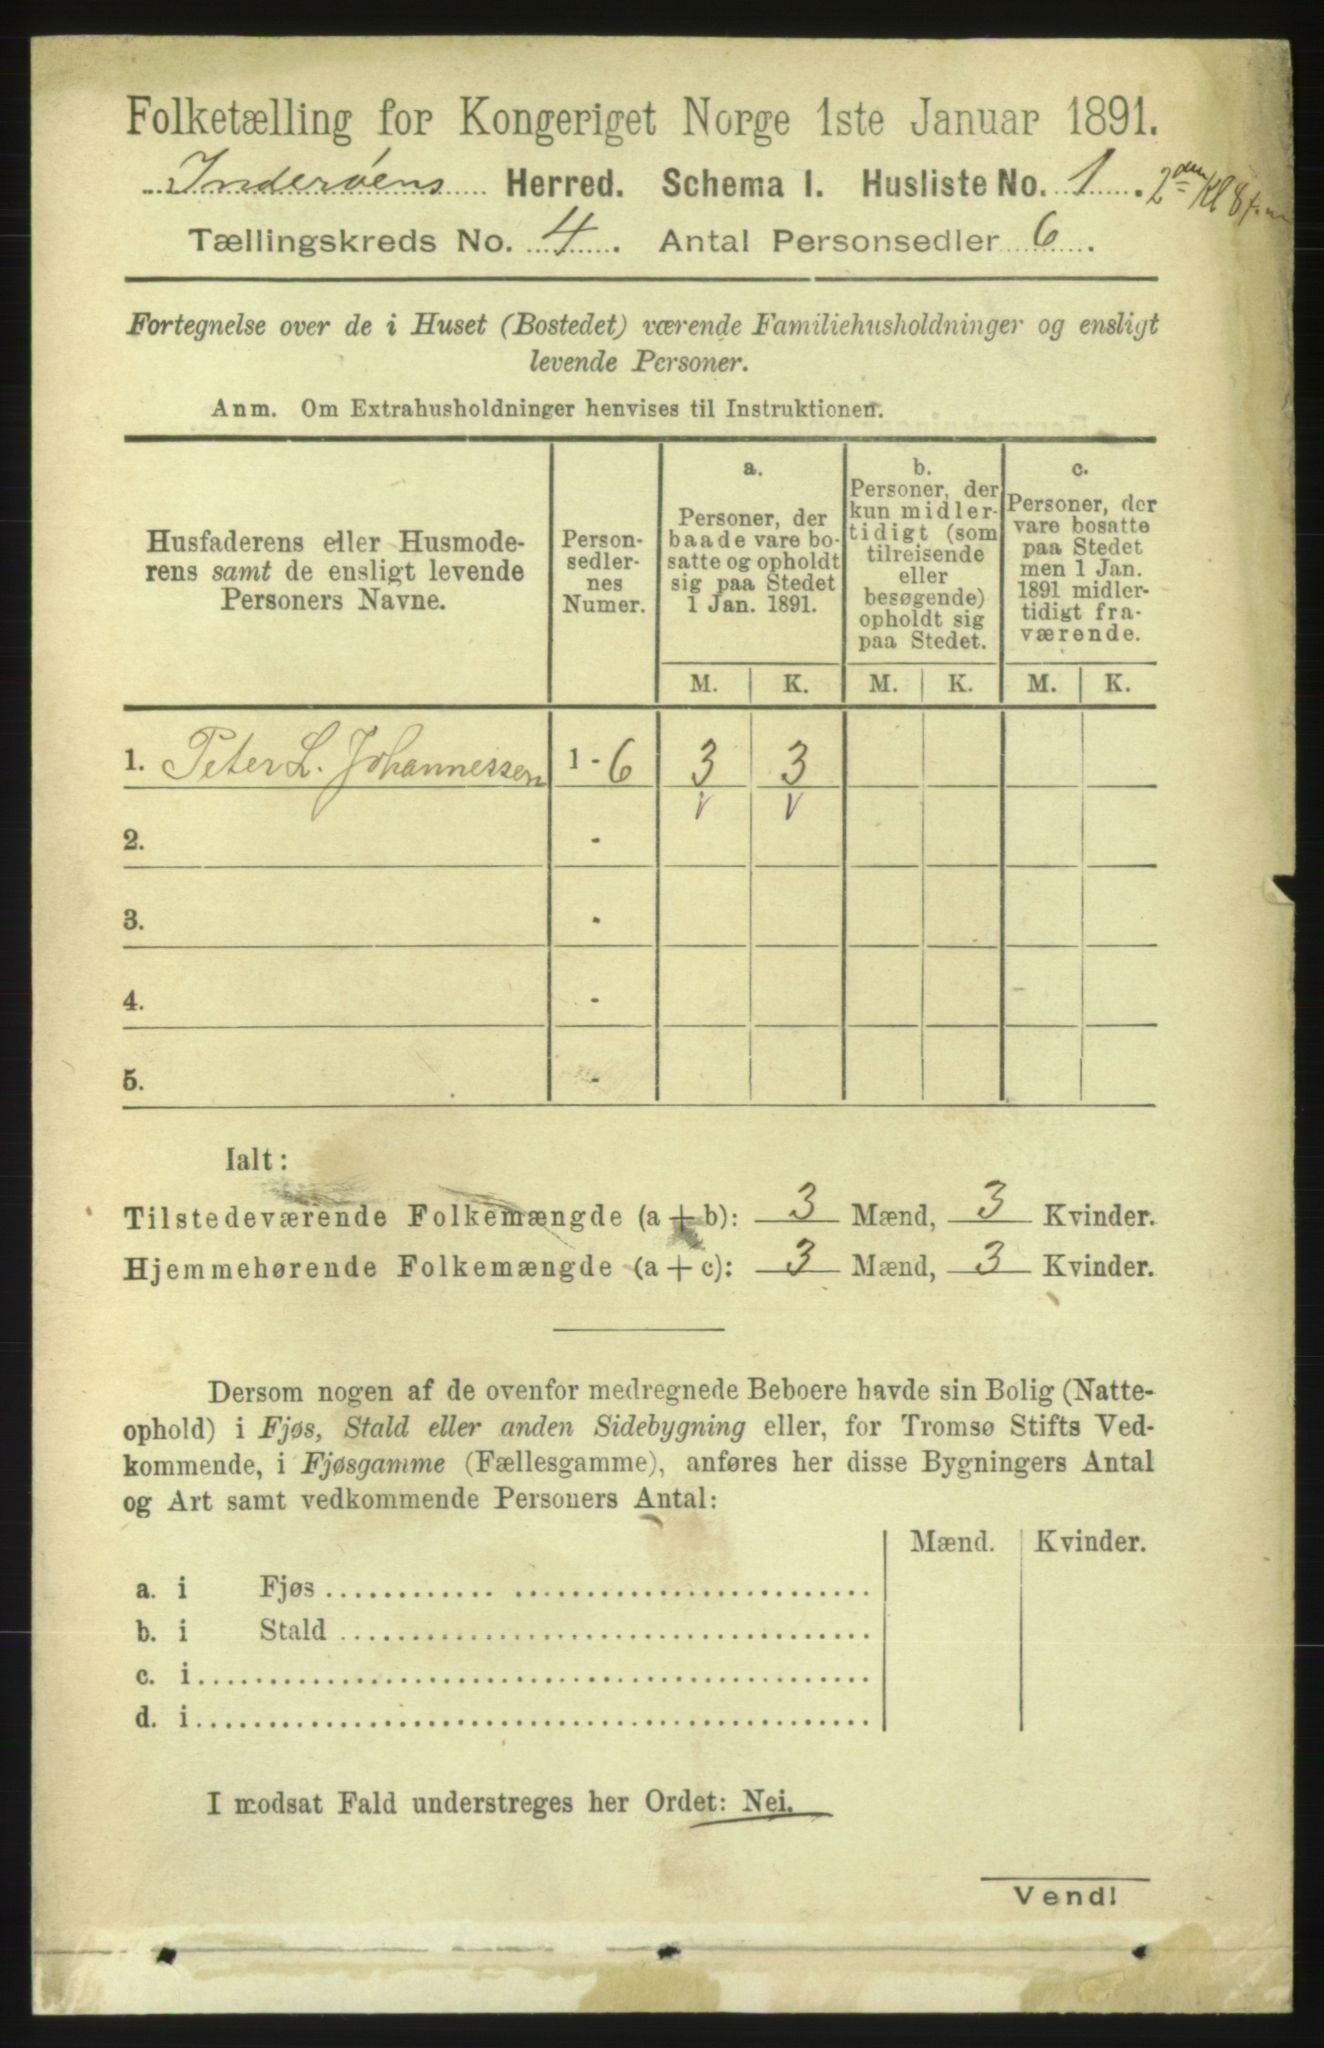 Folketælling for Kongeriget Norge 1ste Januar 1891.
Inderøens Herred. Schema I. Husliste No. 1. 2den Kl 8 f.m
Tællingskreds No. 4. Antal Personsedler 6.
Fortegnelse over de i Huset (Bostedet) værende Familiehusholdninger og ensligt
levende Personer.
Anm. Om Extrahusholdninger henvises til Instruktionen.
Husfaderens eller Husmode-
rens samt de ensligt levende
Personers Navne.
Person-
sedler-
nes
Numer.
a.
Personer, der
baade vare bo-
satte og opholdt
sig paa Stedet
1 Jan. 1891.
b.
Personer, der
kun midler-
tidigt (som
tilreisende
eller
besøgende)
opholdt sig
paa Stedet.
c.
Personer, der
vare bosatte
paa Stedet
men 1 Jan.
1891 midler-
tidigt fra-
værende.
M. K. M. K. M. K.
1. Peter L. Johannessen 1 - 6 3 3
v v
2. -
3. -
4. -
5. -
Ialt:
Tilstedeværende Folkemængde (a + b): 3 Mænd, 3 Kvinder.
Hjemmehørende Folkemængde (a + c): 3 Mænd, 3 Kvinder.
Dersom nogen af de ovenfor medregnede Beboere havde sin Bolig (Natte-
ophold) i Fjøs, Stald eller anden Sidebygning eller, for Tromsø Stifts Ved-
kommende, i Fjøsgamme (Fællesgamme), anføres her disse Bygningers Antal
og Art samt vedkommende Personers Antal:
Mænd. Kvinder.
a. i Fjøs
b. i Stald
c. i
d. i
I modsat Fald understreges her Ordet: Nei.
Vend!